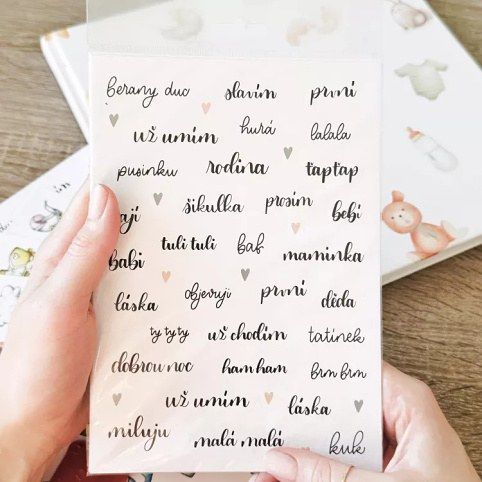 berany duc slavím první
už umím hurá lalala
pusinku rodina ťapťap
ají šikulka prosím bebí
babi tuli tuli baf maminka
láska objevuji první děda
ty ty ty už chodím tatínek
dobrou noc ham ham brm brm
už umím láska
miluju malá malá kuk